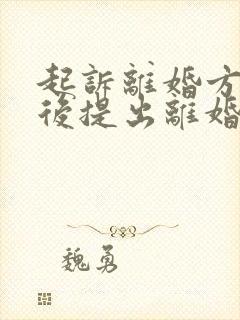 起訴離婚方
後提出離婚
魏勇